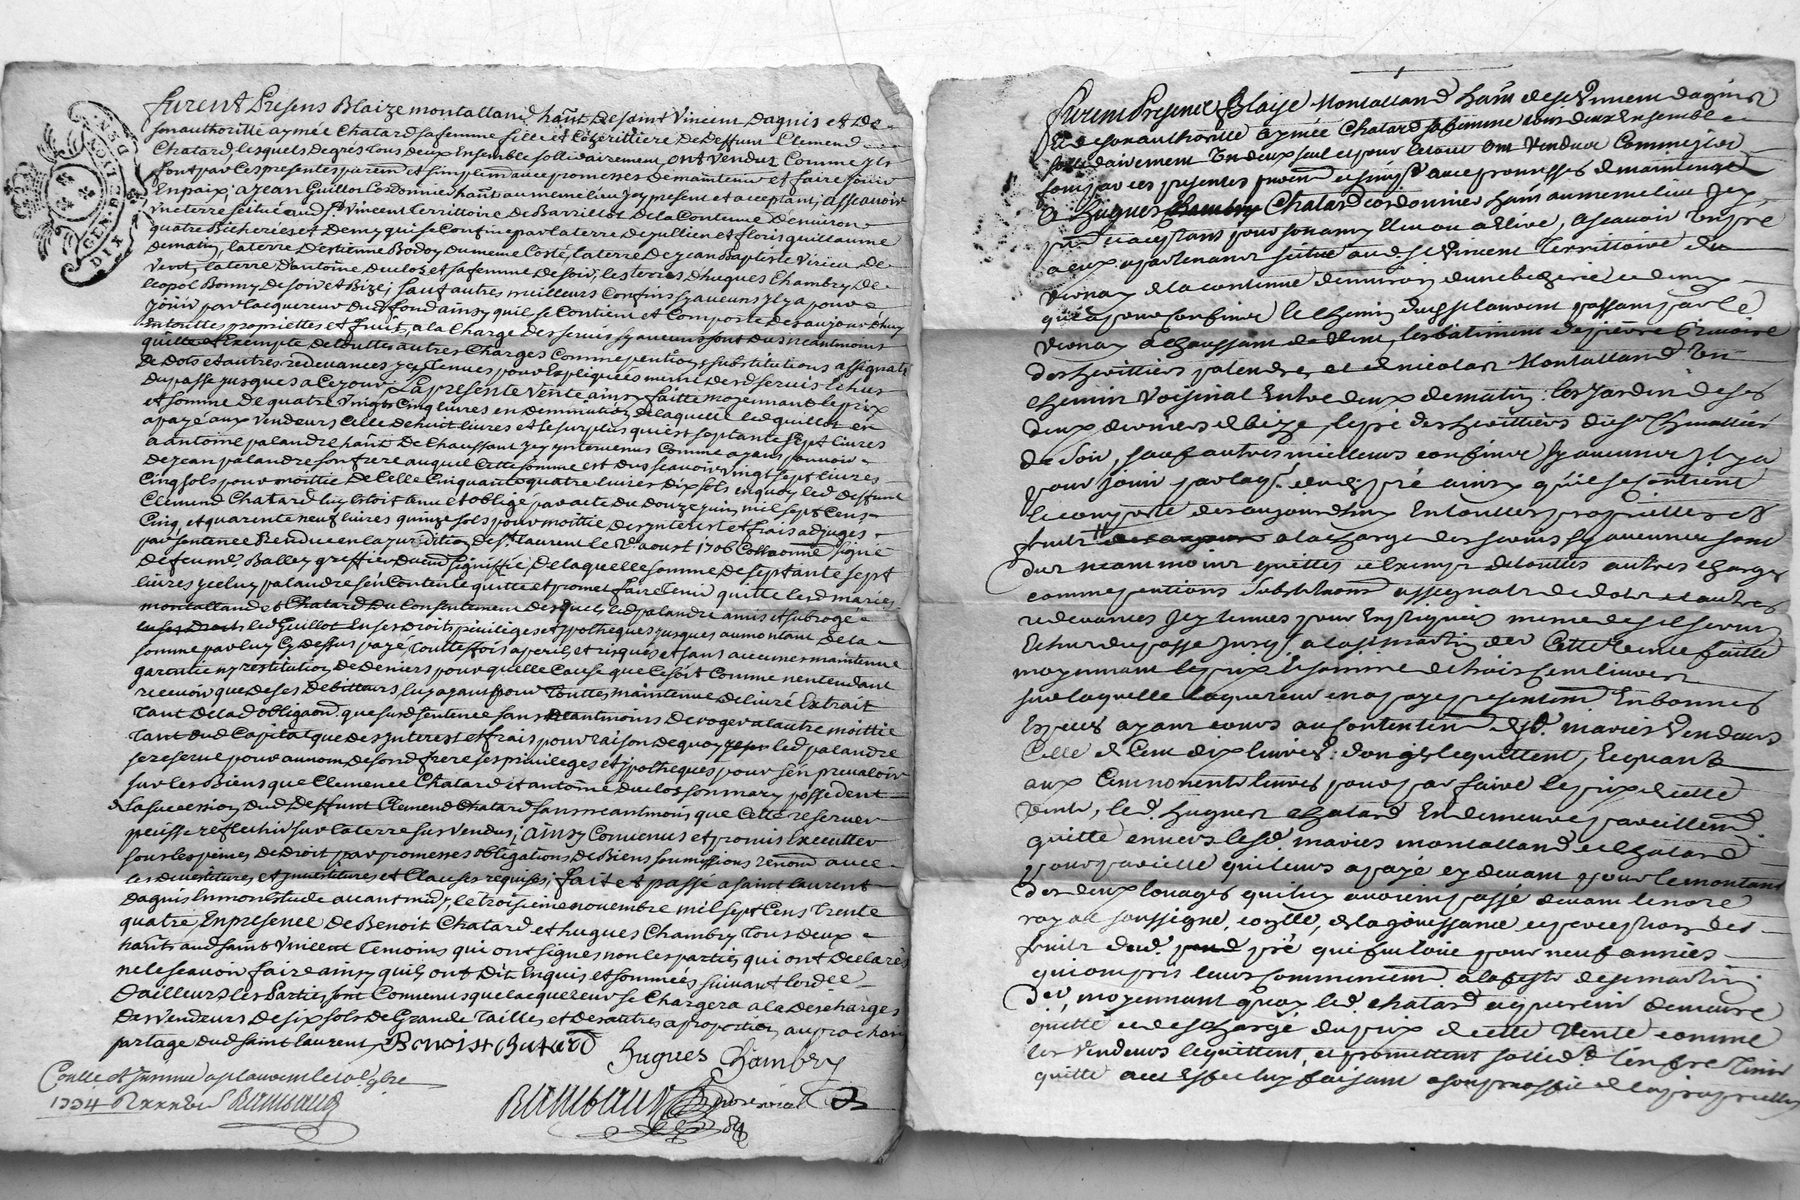 GEN. DE LION
DIX DEN
furent Presens Blaize montalland hañt de saint Vincent Dagnis et de
son authoritté aymée Chatard sa femme fille et Cohérittiere de deffunt Clemend
Chatard, lesquels de gres tous deux Ensemble sollidairement ont vendus Comme ils
font par Ces presentes purem̃t et simplem̃t avec promesses de maintenir et faire jouir
En paix; a Jean Guillot Cordonnier hañt au meme lieu Icy present et acceptant, assçavoir
Une terre scituée aud st Vincent territtoire de Barrillot de la Contenue denviron
quatre Bicheries et Demy qui se Confine par la terre de Jullien et floris guillaume
de matin, la terre destienne Bodoy du meme Costé, la terre de Jean Baptiste Virieu de
Vent, la terre dantoine duclos et sa femme de soir, les terres dhugues Chambry de
leopol Bonny de soir et Bize; sauf autres meilleurs Confins sy aucuns Il y a pour
Jouir par lacquereur dud fond ainsy quil se Contient et Comporte des aujourdhuy
En touttes proprietttes et fruit, a la Charge des servis sy aucuns sont dus neantmoins
quitte et Exempte de touttes autres Charges Comme pentions substitutions assignats
de dots et autres redevances Icy tenues pour Expliquées meme desd servis Echus
du passe jusques a Ce jour La presente Vente ainsy faitte moyennant le prix
et somme de quatre vingts Cinq livres en deminution de laquelle led guillot en
a payé aux Vendeurs Celle de huit livres et le surplus qui est septante sept livres
a antoine palandre hañt de Chaussant Icy Intervenus Comme ayant pouvoir
de jean palandre son frere auquel Cette somme est dus scavoir vingt sept livres
Cinq sols pour moittié de Celle Cinquante quatre livres dix sols en quoy led deffunt
Clemend Chatard luy Etoit tenu et obligé par acte du douze juin mil sept Cens
Cinq, et quarente neuf livres quinze sols pour moittié des Interest et frais adjuges
par sentence Rendue en la jurisdiction de st laurent le 2e aoust 1706 Collaonné signé
de fenme Balley greffier duem̃t signiffié, de laquelle somme de septante sept
livres Iceluy palandre sen Contente quitte et promet faire tenir quitte lesd mariés
montalland et Chatard du Consentement desquels led palandre a mis et subrogé
led Guillot En ses Droits privileges et ypotheques jusques au montant de la
somme par luy Cy dessus payé touttefois a perils et risques et sans aucune maintenue
garentie ny restitution de deniers pour quelle Cause que Ce soit Comme nentendant
recevoir que de ses debitteurs luy ayant pour touttes maintenue delivré Extrait
tant de lad obligaon que susd sentence sans neantmoins deroger a lautre moittié
tant dud Capital que des Interest et frais pour raison de quoy led palandre
se reserve pour au nom de sond frere ses privileges et ypotheques pour sen prevaloir
sur les Biens que Clemence Chatard et antoine duclos son mary possedent
la succession dud deffunt Clemend Chatard sans neantmoins que Cette reserve
puisse reflechir sur la terre sus vendus; ainsy Convenus et promis Executter
sous les peines de droit par promesses obligations de Biens soumissions renond avec
les devestitures et Investitures et Clauses requises; fait et passé a saint laurent
dagnis En mon Etude avant midy le troisieme novembre mil sept Cens trente
quatre, En presence de Benoit Chatard et hugues Chambry tous deux
hañts aud saint Vincent temoins qui ont signes non les parties qui ont declarés
ne le scavoir faire ainsy quils ont dit Enquis et sommées suivant lordce
dailleurs les Parties sont Convenus que lacquereur se Chargera a la descharge
des Vendeurs de six sols de Grande taille et des autres a proportion, au prochain
partage dud saint laurent Benoist Chatard
hugues Chambry
Rambaud
Conlle et Insinué a st laurent le 10e 9bre
1734 Rambaud
furent Presents Blaise Montalland hañt de st Vincent dagnist
Et de son authoritté aymée Chatard sa femme tous deux Ensemble
sollidairement lun deux seul et pour le tout ont vendue Comme Ils
font par ces presentes purem̃t et simp̃t avec promesses de maintenir
a hugues Chatard cordonnier hañt au meme lieu Icy
pnt et acceptant pour son amy Eleu ou a Elire, ascavoir Un pre
a eux apartenant scitué aud st Vincent territtoire du
vernay de la contenue denviron dune bicherie et demy
qui a pour confins le chemin dud st laurent passant par le
vernay a chaussant de vent, les batiment de pierre Grimoire
des heritiers palendre, et de nicolas Montalland Un
chemin Voisinal Entre deux de matin; les jardin de ses
deux derniers de bize, le pré des heritiers du sr Chevallier
de soir, sauf autres meilleurs confins sy aucuns Il y a
pour jouir par laq.r dud pré ainsy qu'il se contient
Et comporte des aujourdhuy En touttes proprietttes et
fruits a la charge des servis sy aucuns sont
dus neantmoins quittes et Exempt de touttes autres charges
comme pentions substitutions assignats de dots et autres
redevances Icy tenues pour Expliquées meme desd servis
Echus du passé jusq. a la st martin der Cette vente faitte
moyennant le prix Et somme de trois cent livres
sur laquelle lacquereur en a payé presentem̃t En bonnes
Especes ayant cours au contentem̃t desd. mariés Vendeurs
Celle de Cent dix livres: dont Ils le quittent, Et quant
aux Cent nonente livres pour parfaire le prix de cette
Vente, led. hugues Chatard En demeure pareillem̃t
quitte envers lesd. mariés montalland et Chatard
pour pareille qui leurs a payé cy devant pour le montant
des deux louages quil luy avoient passé devant le nore
royal soussigné, de la jouissance et perception des
fruits dud. pré qui fut loué pour neuf années
qui ont pris leurs commencem̃t a la feste de st martin
der, moyennant quoy led. chatard acquereur demeure
quitté et deschargé du prix de cette Vente comme
les Vendeurs le quittent, et promettent sollid.t len fre tenir
quitté